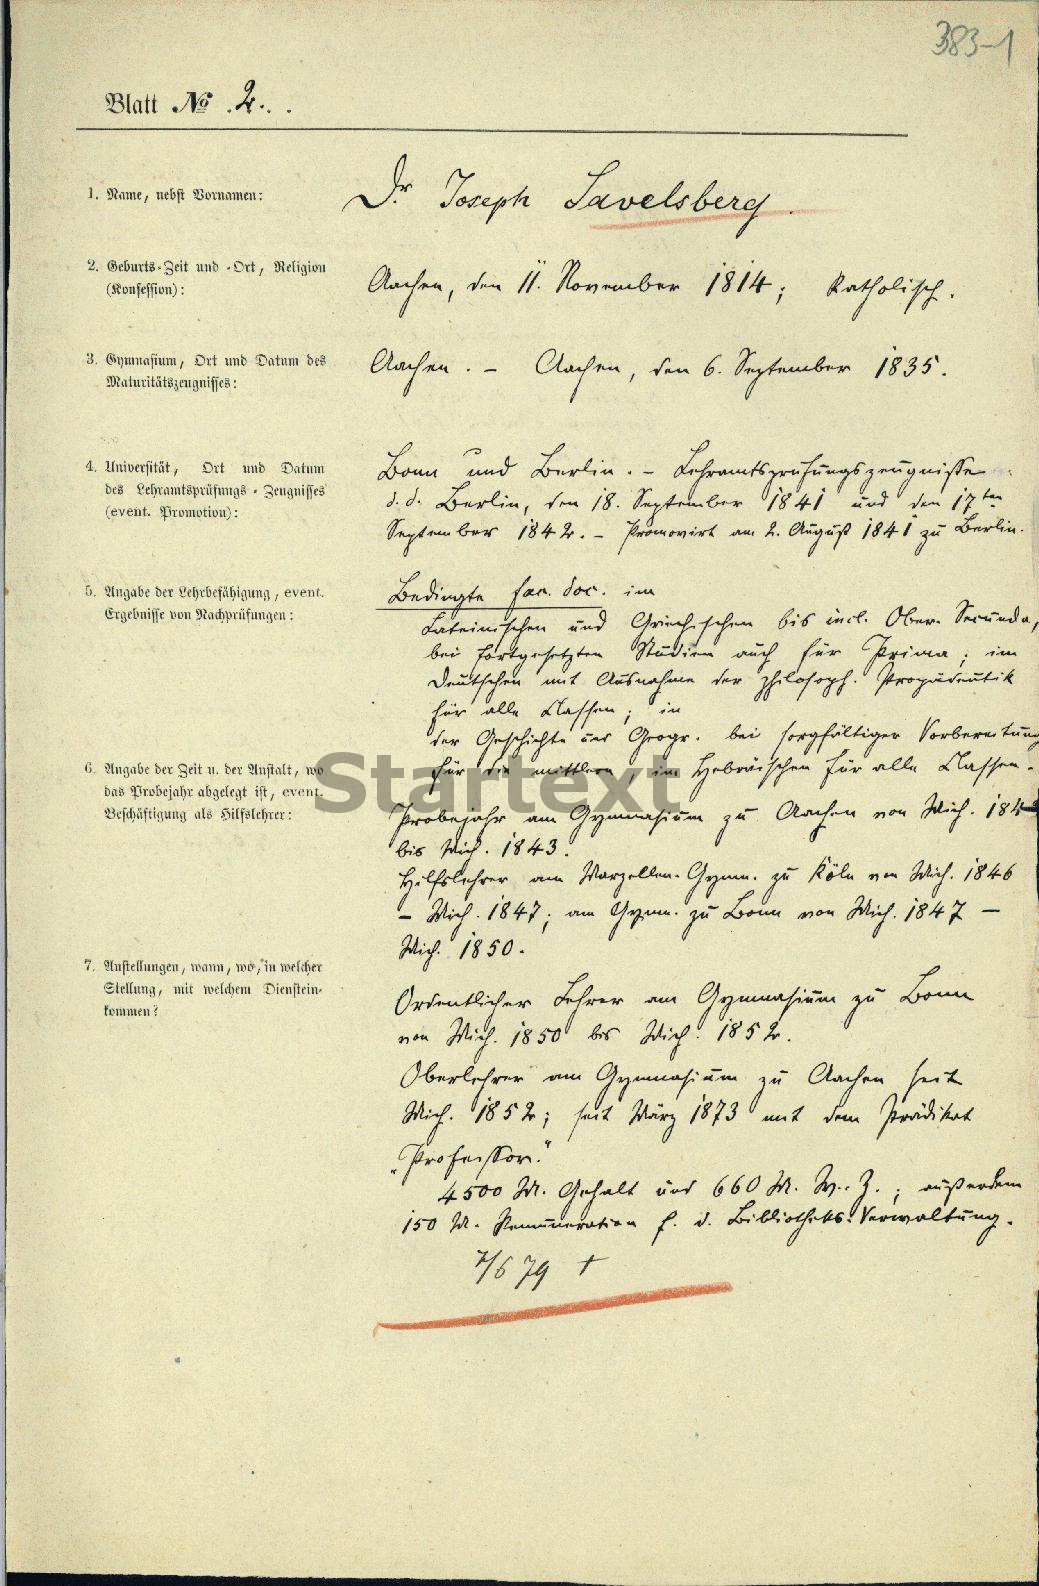 383-1
Blatt № 2.
1. Name, nebst Vornamen:
Dr. Joseph Savelsberg.
2. Geburts-Zeit und -Ort, Religion
(Konfession):
Aachen, den 11. November 1814; Katholisch.
3. Gymnasium, Ort und Datum des
Maturitätszeugnisses:
Aachen. – Aachen, den 6. September 1835.
4. Universität, Ort und Datum
des Lehramtsprüfungs-Zeugnisses
(event. Promotion):
Bonn und Berlin. – Lehramtsprüfungszeugnisse
d. d. Berlin, den 18. September 1841 und den 17ten
September 1842. – Promovirt am 2. August 1841 zu Berlin.
5. Angabe der Lehrbefähigung, event.
Ergebnisse von Nachprüfungen:
Bedingte fac. doc. im
Lateinischen und Griechischen bis incl. Ober-Secunda,
bei fortgesetzten Studien auch für Prima; im
Deutschen mit Ausnahme der philosoph. Propädeutik
für alle Classen; in
der Geschichte und Geogr. bei sorgfältiger Vorbereitung
für die mittlern im Hebräischen für alle Classen.
6. Angabe der Zeit u. der Anstalt, wo
das Probejahr abgelegt ist, event.
Beschäftigung als Hilfslehrer:
Probejahr am Gymnasium zu Aachen von Mich.
bis Mich. 1843.
Hilfslehrer am Marzellen-Gymn. zu Köln von Mich. 1846
– Mich. 1847; am Gymn. zu Bonn von Mich. 1847 –
Mich. 1850.
7. Anstellungen, wann, wo, in welcher
Stellung, mit welchem Dienstein-
kommen?
Ordentlicher Lehrer am Gymnasium zu Bonn
von Mich. 1850 bis Mich. 1852.
Oberlehrer am Gymnasium zu Aachen seit
Mich. 1852; seit März 1873 mit dem Prädikat
„Professor."
4500 M. Gehalt und 660 M. W. Z.; außerdem
150 M. Remuneration f. d. Bibliotheks-Verwaltung.
7/6 79 †
Startext